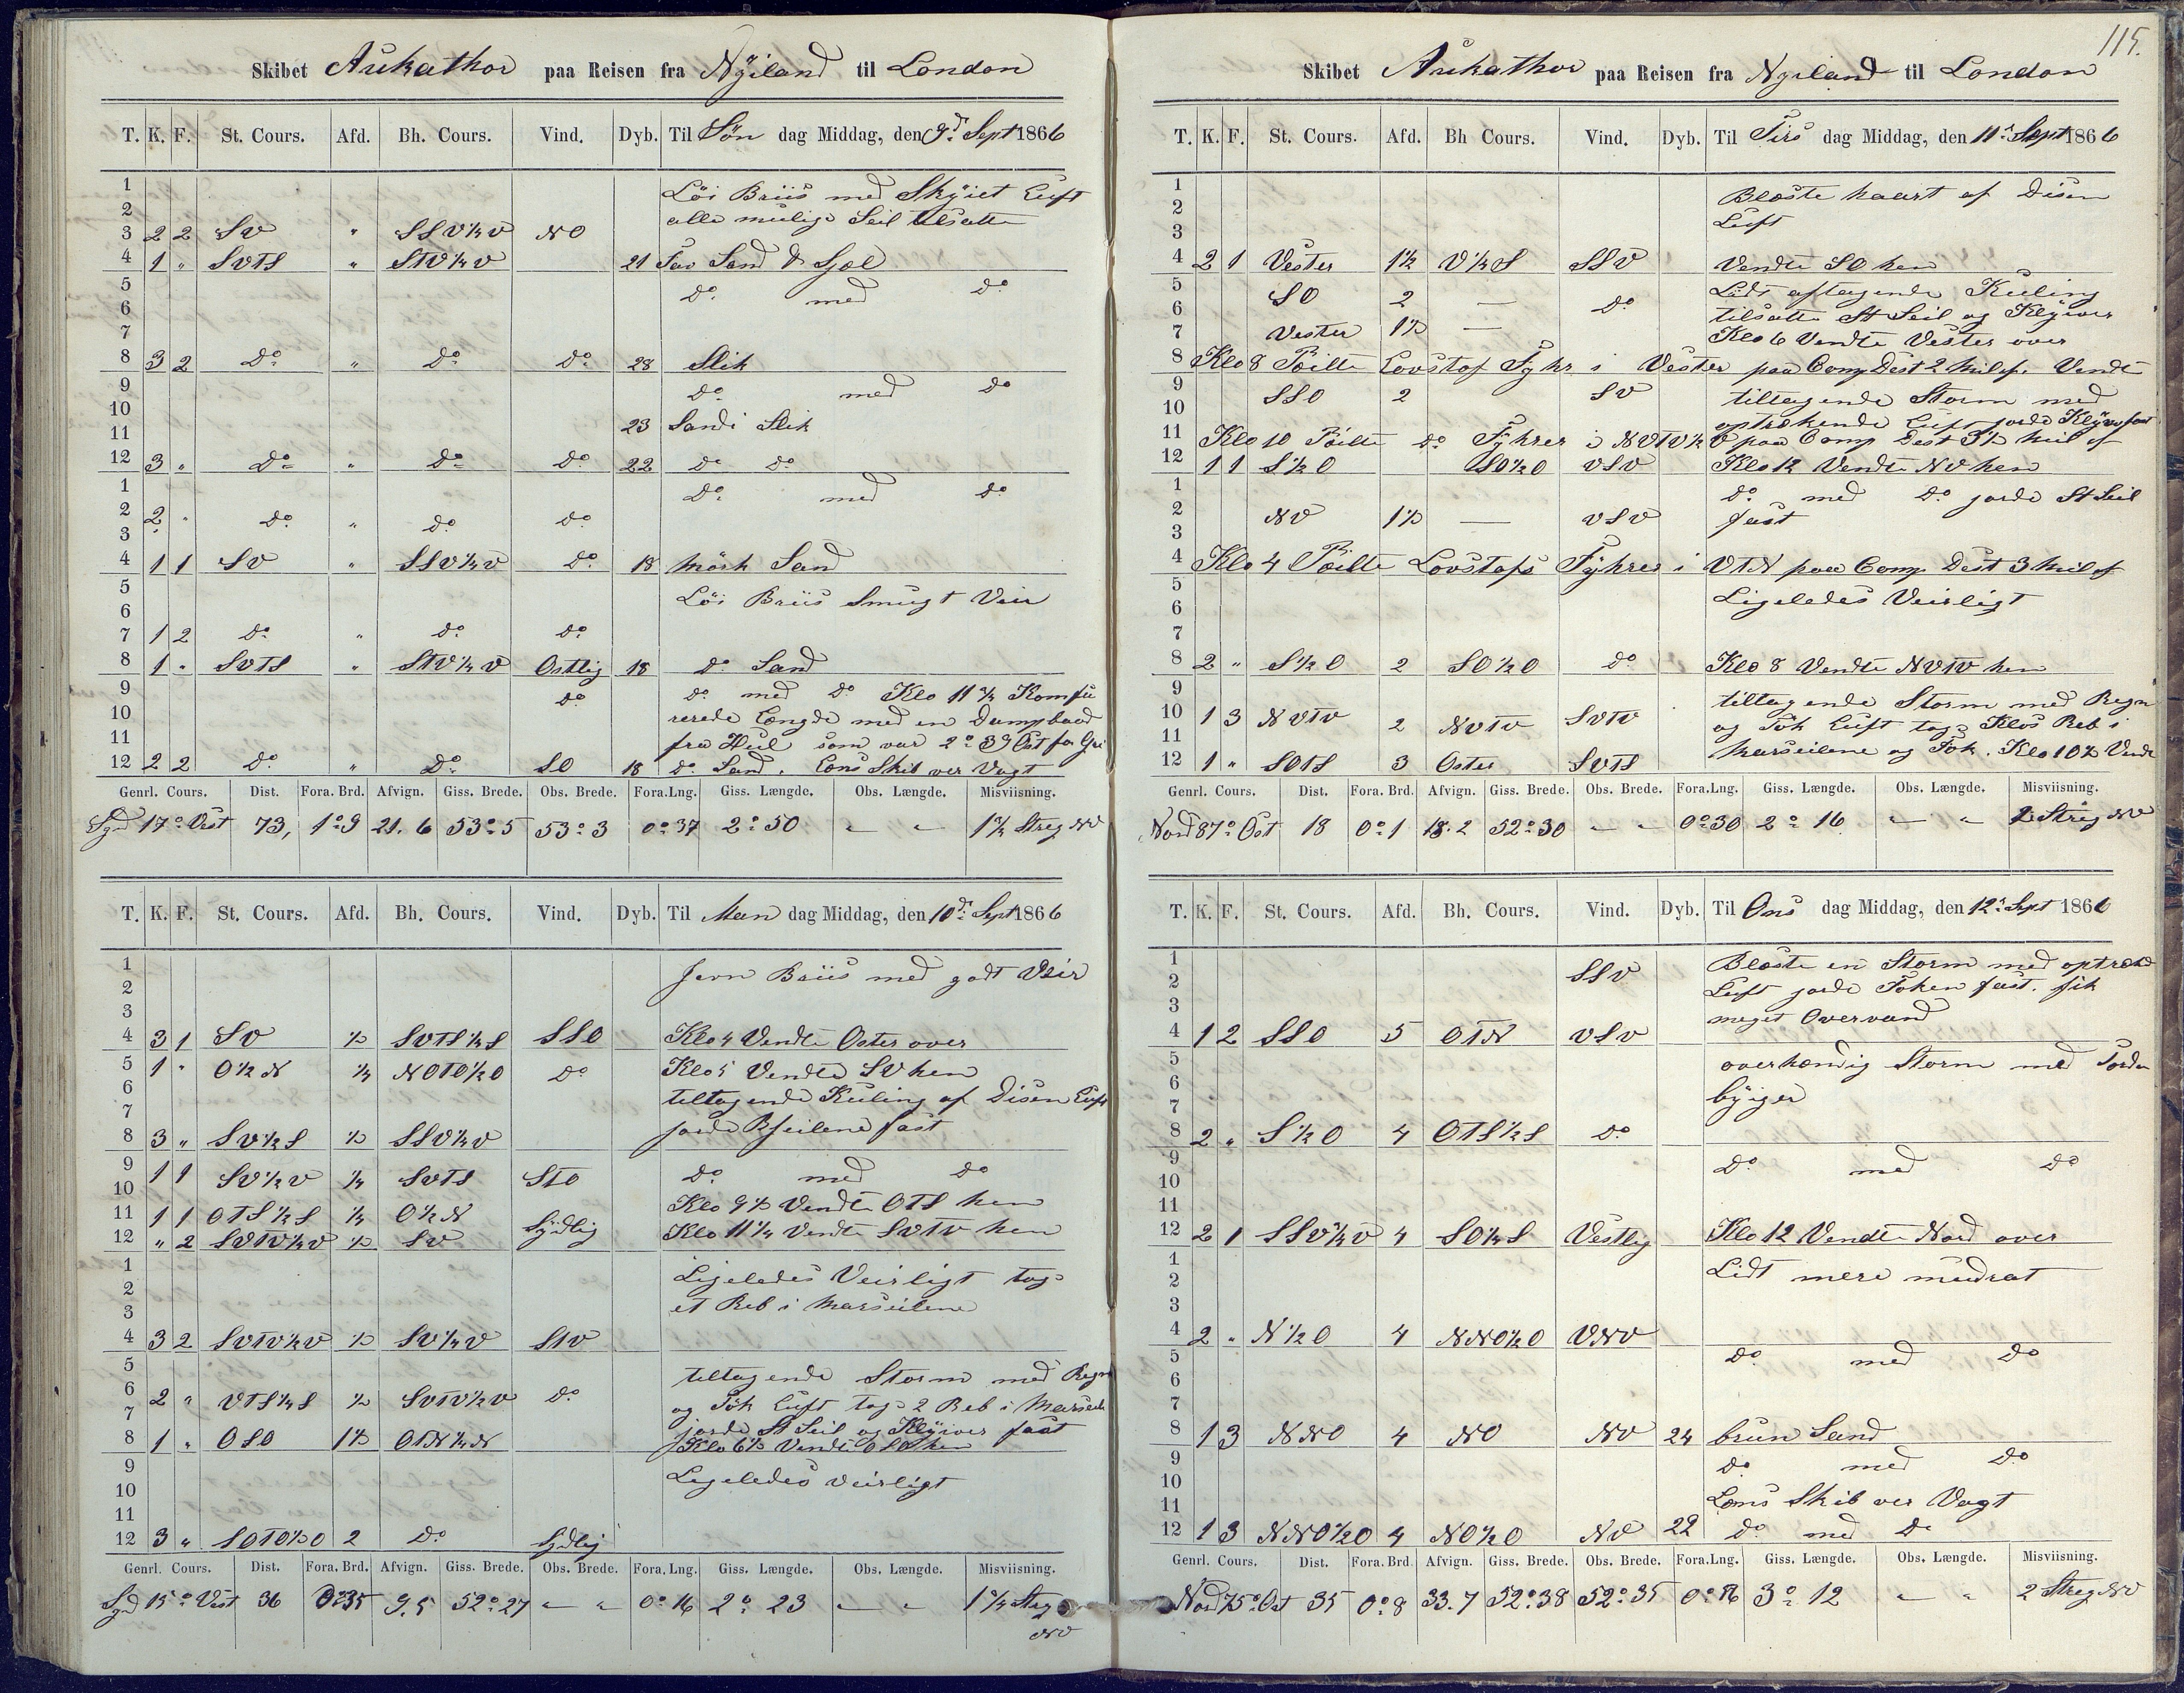 Skibet Aukathor paa Reisen fra Nyland til London
T. K. F. St. Cours. Afd. Bh. Cours. Vind. Dyb. Til Søn dag Middag, den 9d Sept 1866
1 Löi Briis med Skyiet Luft
2 alle mulige Seil tilsatte
3 2 2 SV " SSV¼V NO
4 1 " SVTS " STV¼V 21 Sand &
5 Do med Do
6
7
8 3 2 Do " Do Do 28 Slik
9 Do med Do
10
11 23 Sand i Slik
12 3 " Do " Do Do 22 Do Do
1 Do med Do
2 2 " Do " Do Do
3
4 1 1 SV " SSV¼V Do 18 mörk Sand
5 Löi Briis Smugt Veir
6
7 1 2 Do " Do Do
8 1 " SVTS " STV¼V Ostlig 18 Do Sand
9 Do Do med Do Klo 11¾ Komfu
10 rerede Længde med en Dampbaad
11 fra Hul som var 2° 39 Ost for Gri
12 2 2 Do " Do SO 18 Do Sand. Lons Skib ver Vagt
Genrl. Cours. Dist. Fora. Brd. Afvign. Giss. Brede. Obs. Brede. Fora. Lng. Giss. Længde. Obs. Længde. Misviisning.
Syd 17° Vest 73, 1°9 21.6 53°5 53°3 0°37 2°50 " " 1¾ Streg NV
T. K. F. St. Cours. Afd. Bh. Cours. Vind. Dyb. Til Man dag Middag, den 10d Sept 1866
1 Jevn Briis med godt Veir
2
3
4 3 1 SV ½ SVTS¼S SSO Klo 4 Vendte Oster over
5 1 " O½N ¼ NOTO½O Do Klo 5 Vendte SV hen
6 tiltagende Kuling af Disen Luft
7 jorde Bseilene fast
8 3 " SV½S ½ SSV¼V
9 1 1 SV½V ¼ SVTS STO Do med Do
10 Klo 9½ Vendte OTS hen
11 1 1 OTS½S ¼ O½N Sydlig Klo 11¼ Vendte SVTV hen
12 " 2 SVTV¼V ½ SV
1 Ligeledes Veirligt tog
2 et Reb i Marseilene
3
4 3 2 SVTV½V ½ SV¼V STV
5 tiltagende Storm med Regn
6 2 " VTS¼S ½ SVTV½V Do og Tök Luft tog 2 Reb i Marseile
7 jorde St Seil og Klyiver fast
8 1 " OSO 1½ OTN¼N Klo 6½ Vendte OSO hen
9 Ligeledes veirligt
10
11
12 3 " SOTO½O 2 Do Sydlig
Genrl. Cours. Dist. Fora. Brd. Afvign. Giss. Brede. Obs. Brede. Fora. Lng. Giss. Længde. Obs. Længde. Misviisning.
Syd 15° Vest 36 0°35 9.5 52°27 " " 0°16 2°23 " " 1¾ Streg
NV
115.
Skibet Aukathor paa Reisen fra Nyland til London
T. K. F. St. Cours. Afd. Bh Cours. Vind. Dyb. Til Tirs dag Middag, den 11d Sept 1866
1 Blæste haart af Disen
2 Luft
3
4 2 1 Vester 1½ V¼S SSV Vendte SO hen
5 SO 2 — Do Lidt aftagende Kuling
6 tilsatte St Seil og Klyiver
7 Vester 1½ — Klo 6 Vendte Vester over
8 Klo 8 Peilte Lovstof Fyhr i Vester paa Comp Dist 2 Mil af. Vendte
9 SSO 2 SV tiltagende Storm med
10 optrekende Luft jorde Klyver fast
11 Klo 10 Peilte Do Fyhrer i NVTV½V paa Comp Dist 3½ Mil af
12 1 1 S½O SO½O VSV Klo 12 Vendte NV hen
1 Do med Do jorde St Seil
2 NV 1½ — VSV fast
3
4 Klo 4 Peilte Lovstofs Fyhrer i VTN paa Comp Dist 3 Mil af
5 Ligeledes Veirligt
6
7
8 2 " S½O 2 SO½O Do Klo 8 Vendte NVTV hen
9 tiltagende Storm med Regn
10 1 3 NVTV 2 NVTV SVTV og Tök Luft tog Klos Reb i
11 Marseilene og Fok. Klo 10½ Vendte
12 1 " SOTS 3 Oster SVTS
Genrl. Cours. Dist. Fora. Brd. Afvign. Giss. Brede. Obs. Brede. Fora. Lng. Giss. Længde. Obs. Længde. Misviisning.
Nord 87° Ost 18 0°1 18.2 52°30 " " 0°30 2°16 " " 2 Streg NV
T. K. F. St. Cours. Afd. Bh. Cours. Vind. Dyb. Til Ons dag Middag, den 12d Sept 1866
1 SSV Blæste en Storm med optrekd
2 Luft jorde Foken fast. fik
3 meget Overvand
4 1 2 SSO 5 OTN VSV
5 overhændig Storm med Torden
6 byiger
7
8 2 " S½O 4 OTS½S Do
9 Do med Do
10
11
12 2 1 SSV¼V 4 SO¼S Vestlig Klo 12 Vendte Nord over
1 Lidt mere mudrat
2
3
4 2 " N½O 4 NNO½O VNV
5 Do med Do
6
7
8 1 3 NNO 4 NO NV 24 brun Sand
9 Do med Do
10
11 Lons Skib ver Vagt
12 1 3 NNO½O 4 NO½O NV 22 Do med Do
Genrl. Cours. Dist. Fora. Brd. Afvign. Giss. Brede. Obs. Brede. Fora. Lng. Giss. Længde. Obs. Længde. Misviisning.
Nord 75° Ost 35 0°8 33.7 52°38 52°35 0°56 3°12 " " 2 Streg NV